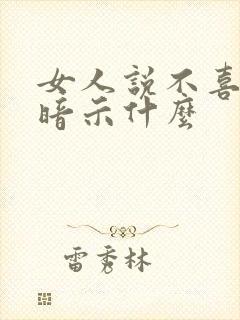 女人説不喜
暗示什麼
雷秀林